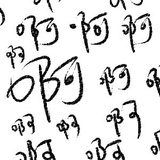 啊 啊 啊
啊
啊 啊 啊
啊 啊 啊
啊 啊 啊